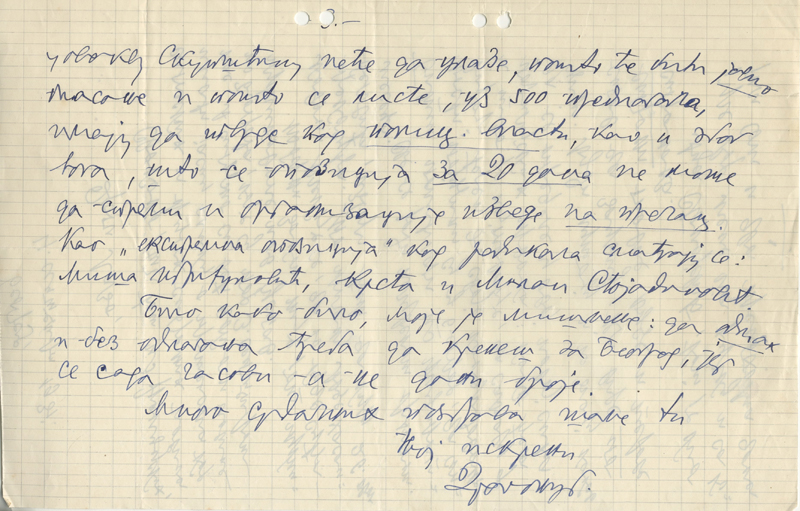 3.-
Скупштину неће да улазе, пошто ће бити јавно
гласање и пошто се листе, уз 500 предлагача,
имају да потврде код полиц. власти, као и због
тога, што се опозиција за 20 дана не може
да спреми и организације изведе на
Као „екстремна опозиција" код радикала сматрају се:
Миша Трифуновић, Крста и Милан Стојадиновић.
Било како било, моје је мишљење: да одмах
и без одлагања треба да кренеш за Београд, јер
се сада часови -а не дани броје.
Много срдачних поздрава шаље ти
твој искрени